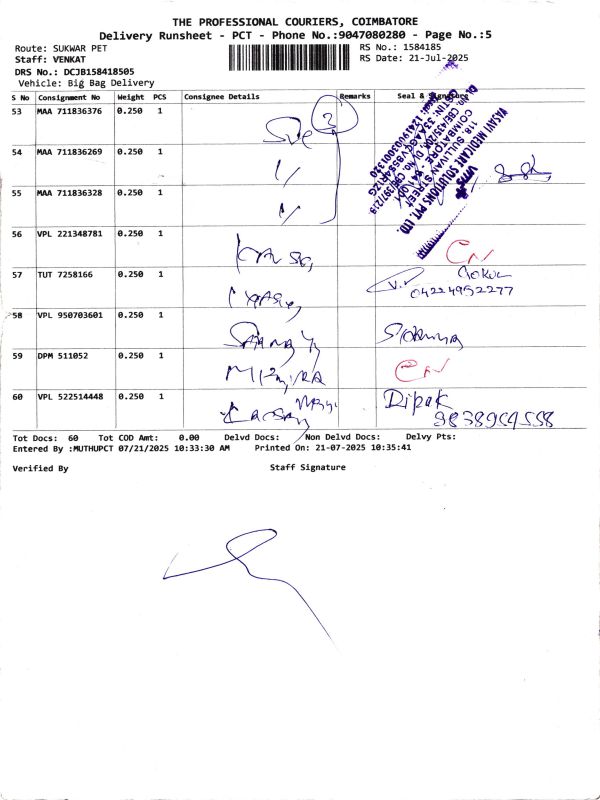 THE PROFESSIONAL COURIERS, COIMBATORE
Delivery Runsheet - PCT - Phone No.:9047080280 - Page No.:5
Route: SUKWAR PET
RS No.: 1584185
Staff: VENKAT
RS Date: 21-Jul-2025
DRS No.: DCJB158418505
Vehicle: Big Bag Delivery
S No Consignment No Weight PCS Consignee Details Remarks Seal & Signature
53 MAA 711836376 0.250 1 3
54 MAA 711836269 0.250 1
55 MAA 711836328 0.250 1
VASAVI MEDICARE SOLUTIONS PVT. LTD.
118 SULLIVAN STREET
COIMBATORE - 641 001
56 VPL 221348781 0.250 1
57 TUT 7258166 0.250 1 Gokul
04224952277
58 VPL 950703601 0.250 1
59 DPM 511052 0.250 1
60 VPL 522514448 0.250 1 Dipak
9838954558
Tot Docs: 60 Tot COD Amt: 0.00 Delvd Docs: Non Delvd Docs: Delvy Pts:
Entered By :MUTHUPCT 07/21/2025 10:33:30 AM Printed On: 21-07-2025 10:35:41
Verified By Staff Signature